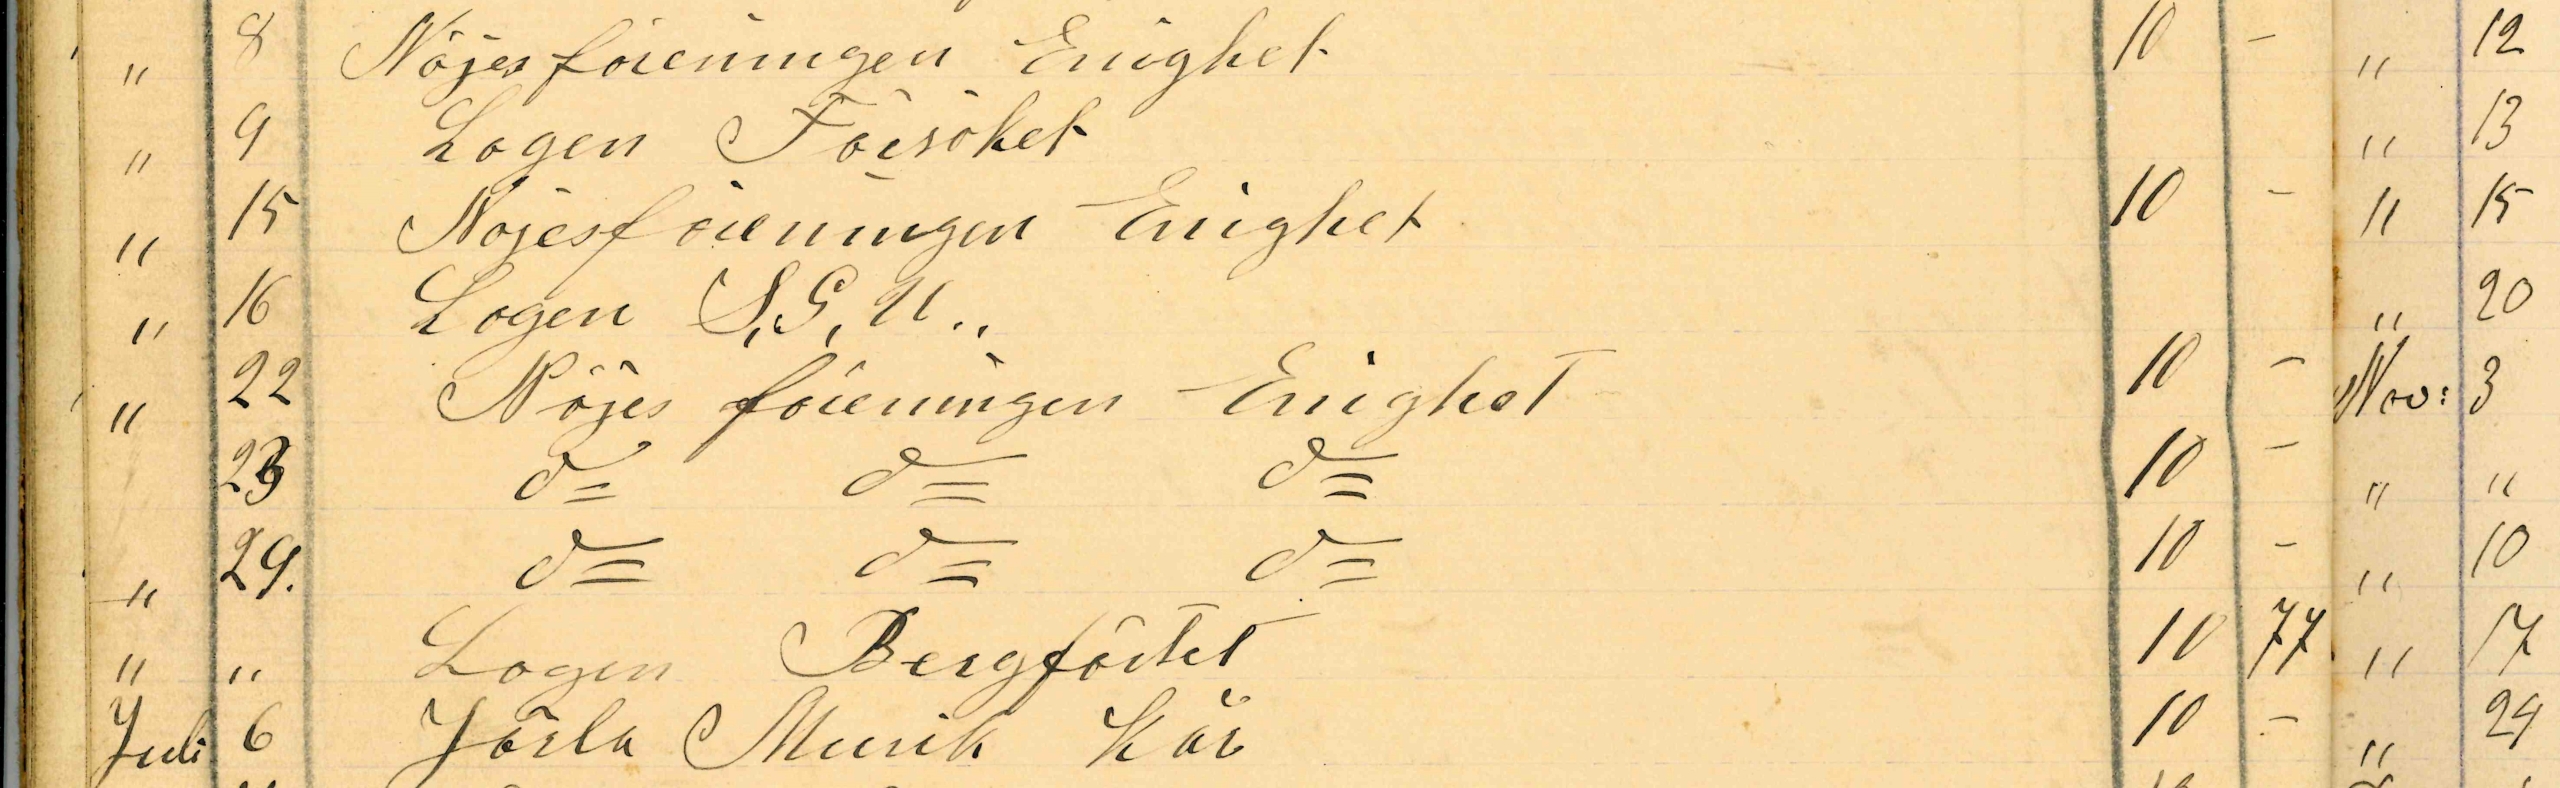 " 8 Nöjesföreningen Enighet 10 - " 12
" 9 Logen Försöket " 13
" 15 Nöjesföreningen Enighet 10 - " 15
" 16 Logen S,G,U.. " 20
" 22 Nöjes föreningen Enighet 10 - Nov: 3
23 d= d= d= 10 - " "
" 29. d= d= d= 10 - " 10
" " Logen Bergfästet 10 77 " 17
Juli 6 Järla Musik Kår 10 - " 24